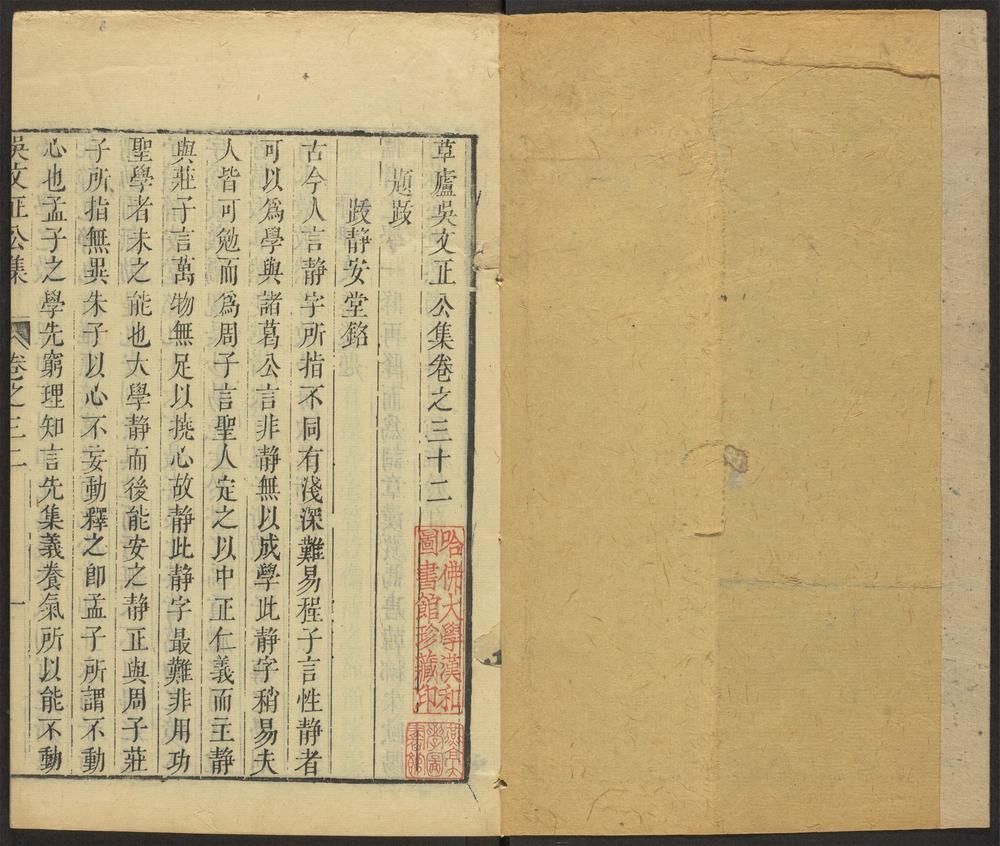 草廬吳文正公集卷之三十二
題跋
跋靜安堂銘
古今人言靜字所指不同有淺深難易程子言性靜者
可以爲學與諸葛公言非靜無以成學此靜字稍易夫
人皆可勉而爲周子言聖人定之以中正仁義而主靜
與莊子言萬物無足以撓心故靜此靜字最難非用功
聖學者未之能也大學靜而後能安之靜正與周子莊
子所指無異朱子以心不妄動釋之卽孟子所謂不動
心也孟子之學先窮理知言先集義養氣所以能不動
吳文正公集
卷之三二
一
哈佛大學漢和
圖書館珍藏印